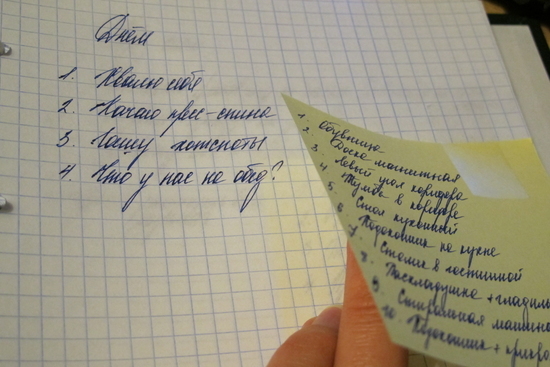 Днём
1. Хвалю себя
2. Качаю пресс-спина
3. Гашу хотспоты
4. Что у нас на обед?
1. Обувница
2. Доска магнитная
3. Левый угол коридора
4. Тумба в коридоре
5. Стол кухонный
6. Подоконник на кухне
7. Столик в гостинной
8. Раскладушка + гладиль
9. Стиральная машина
10. Подоконник + крова